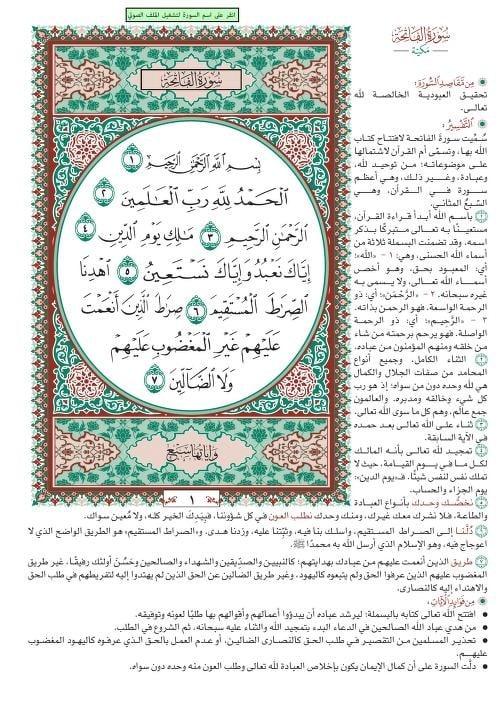 انقر على اسم السورة لتشغيل الملف الصوتي
سُورَةُ الفَاتِحَةِ
مَكيَّة
سُورَةُ الفَاتِحَةِ
بِسْمِ اللَّهِ الرَّحْمَٰنِ الرَّحِيمِ ١
الْحَمْدُ لِلَّهِ رَبِّ الْعَالَمِينَ ٢
الرَّحْمَٰنِ الرَّحِيمِ ٣ مَالِكِ يَوْمِ الدِّينِ ٤
إِيَّاكَ نَعْبُدُ وَإِيَّاكَ نَسْتَعِينُ ٥ اهْدِنَا
الصِّرَاطَ الْمُسْتَقِيمَ ٦ صِرَاطَ الَّذِينَ أَنْعَمْتَ
عَلَيْهِمْ غَيْرِ الْمَغْضُوبِ عَلَيْهِمْ
وَلَا الضَّالِّينَ ٧
وَآيَاتُهَا سَبْعٌ
١
مِن مَّقَاصِدِ السُّورَةِ:
تحقيق العبودية الخالصة لله
تعالى.
التَّفْسِيرُ:
سُمِّيت سورة الفاتحة لافتتاح كتاب
الله بها، وتسمَّى أم القرآن لاشتمالها
على موضوعاته؛ من توحيد لله،
وعبادة، وغير ذلك، وهي أعظم
سورة في القرآن، وهي
السَّبعُ المثاني.
١ باسم الله أبدأ قراءة القرآن،
مستعينًا به تعالى متبركًا بذكر
اسمه. وقد تضمنت البسملة ثلاثة من
أسماء الله الحسنى، وهي: ١ - «الله»؛
أي: المعبود بحق، وهو أخص
أسماء الله تعالى، ولا يسمى به
غيره سبحانه. ٢ - «الرَّحْمَن»؛ أي: ذو
الرحمة الواسعة. فهو الرحمن بذاته.
٣ - «الرَّحِيم»؛ أي: ذو الرحمة
الواصلة. فهو يرحم برحمته من شاء
من خلقه ومنهم المؤمنون من عباده.
٢ الثناء الكامل، وجميع أنواع
المحامد من صفات الجلال والكمال
هي لله وحده دون من سواه؛ إذ هو رب
كل شيء وخالقه ومدبره. والعالمون
جمع عالَم، وهم كل ما سوى الله تعالى.
٣ ثناء على الله تعالى بعد حمده
في الآية السابقة.
٤ تمجيد لله تعالى بأنه المالك
لكل ما في يوم القيامة، حيث لا
تملك نفس لنفس شيئًا. فـ«يوم الدين»:
يوم الجزاء والحساب.
٥ نخصُّك وحدك بأنواع العبادة
والطاعة، فلا نشرك معك غيرك، ومنك وحدك نطلب العون في كل شؤوننا، فبِيَدِكَ الخير كله، ولا مُعين سواك.
٦ دُلَّنا إلى الصراط المستقيم، واسلك بنا فيه، وثبِّتنا عليه، وزدنا هدى. و«الصراط المستقيم» هو الطريق الواضح الذي لا
اعوجاج فيه، وهو الإسلام الذي أرسل الله به محمدًا ﷺ.
٧ طريق الذين أنعمت عليهم من عبادك بهدايتهم؛ كالنبيين والصدِّيقين والشهداء والصالحين وحَسُنَ أولئك رفيقًا، غير طريق
المغضوب عليهم الذين عرفوا الحق ولم يتبعوه كاليهود، وغير طريق الضالين عن الحق الذين لم يهتدوا إليه لتفريطهم في طلب الحق
والاهتداء إليه كالنصارى.
مِن فَوَائِدِ الآيَاتِ:
• افتتح الله تعالى كتابه بالبسملة؛ ليرشد عباده أن يبدؤوا أعمالهم وأقوالهم بها طلبًا لعونه وتوفيقه.
• من هدي عباد الله الصالحين في الدعاء البدء بتمجيد الله والثناء عليه سبحانه، ثم الشروع في الطلب.
• تحذير المسلمين من التقصير في طلب الحق كالنصارى الضالين، أو عدم العمل بالحق الذي عرفوه كاليهود المغضوب
عليهم.
• دلَّت السورة على أن كمال الإيمان يكون بإخلاص العبادة لله تعالى وطلب العون منه وحده دون سواه.